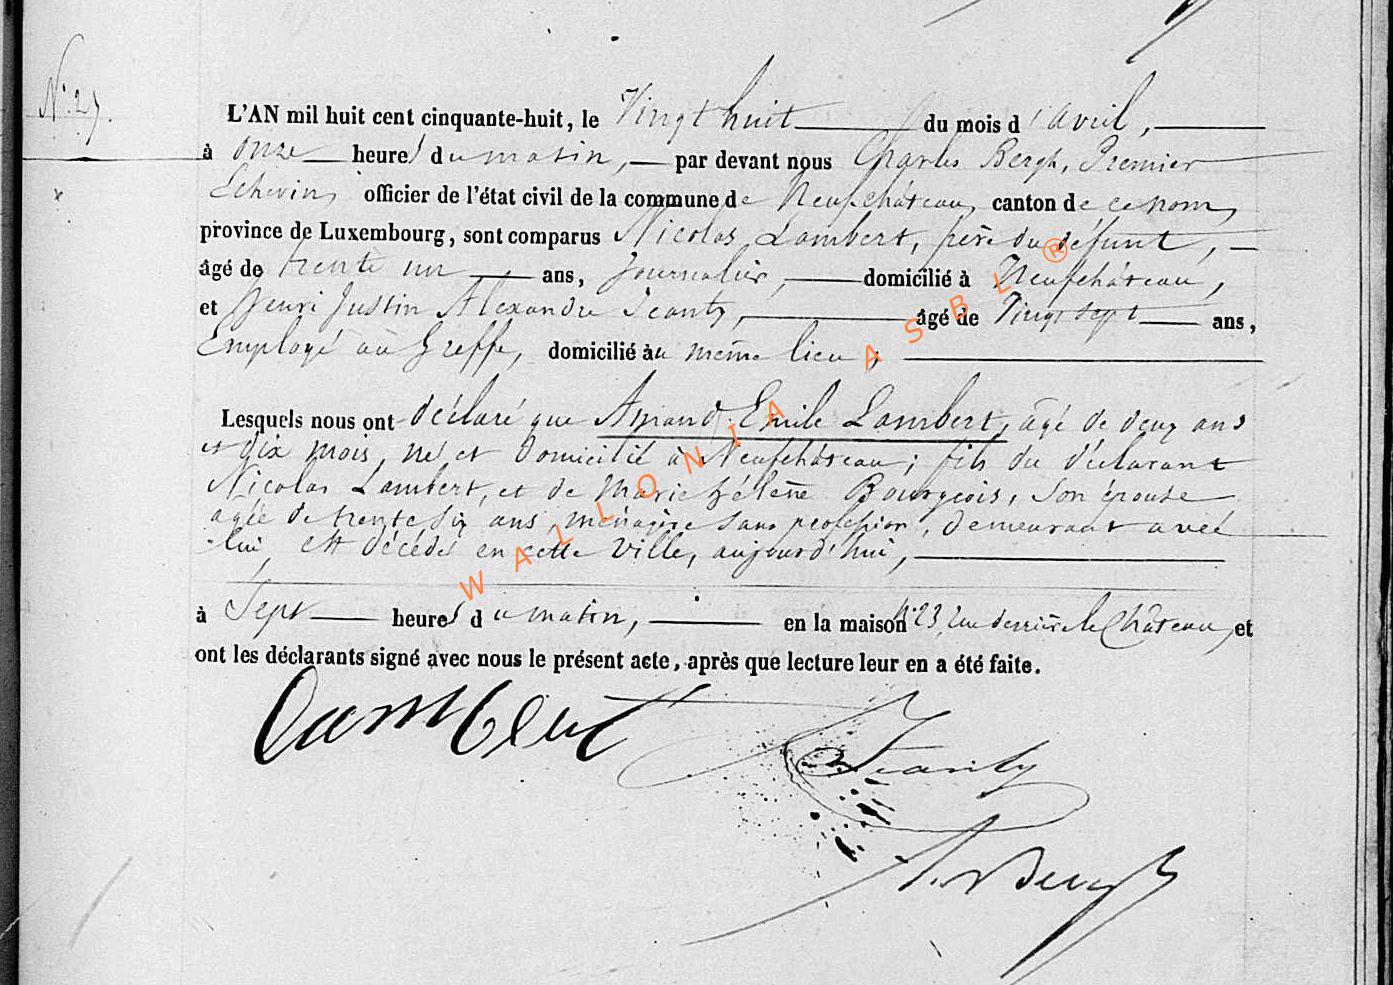 N° 27.
L'AN mil huit cent cinquante-huit, le Vingt huit du mois d'avril,
à onze heures du matin, par devant nous Charles Bergh, Premier
Echevin, officier de l'état civil de la commune de Neufchâteau, canton de ce nom,
province de Luxembourg, sont comparus Nicolas Lambert, père du défunt,
âgé de trente un ans, Journalier, domicilié à Neufchâteau,
et Henri Justin Alexandre Jeanty, âgé de Vingt sept ans,
Employé au Greffe, domicilié au même lieu;
Lesquels nous ont déclaré que Amand Emile Lambert, âgé de deux ans
et dix mois, né et domicilié à Neufchâteau; fils du déclarant
Nicolas Lambert, et de Marie Hélène Bourgeois, son épouse
agée de trente six ans, ménagère sans profession, demeurant avec
lui, est décédé en cette Ville, aujourd'hui,
à Sept heures du matin, en la maison N° 23, rue derrière le Château, et
ont les déclarants signé avec nous le présent acte, après que lecture leur en a été faite.
Lambert
Jeanty
Bergh
WALLONIA ASBL ®